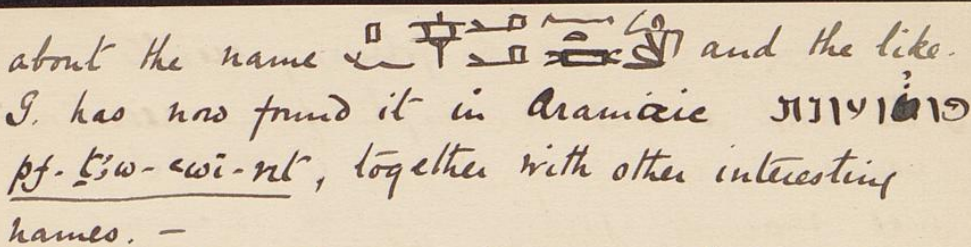 about the name and the like.
G. has now found it in Aramaic
pf-ṯꜣw-ꜥwi-nt, together with other interesting
names. —